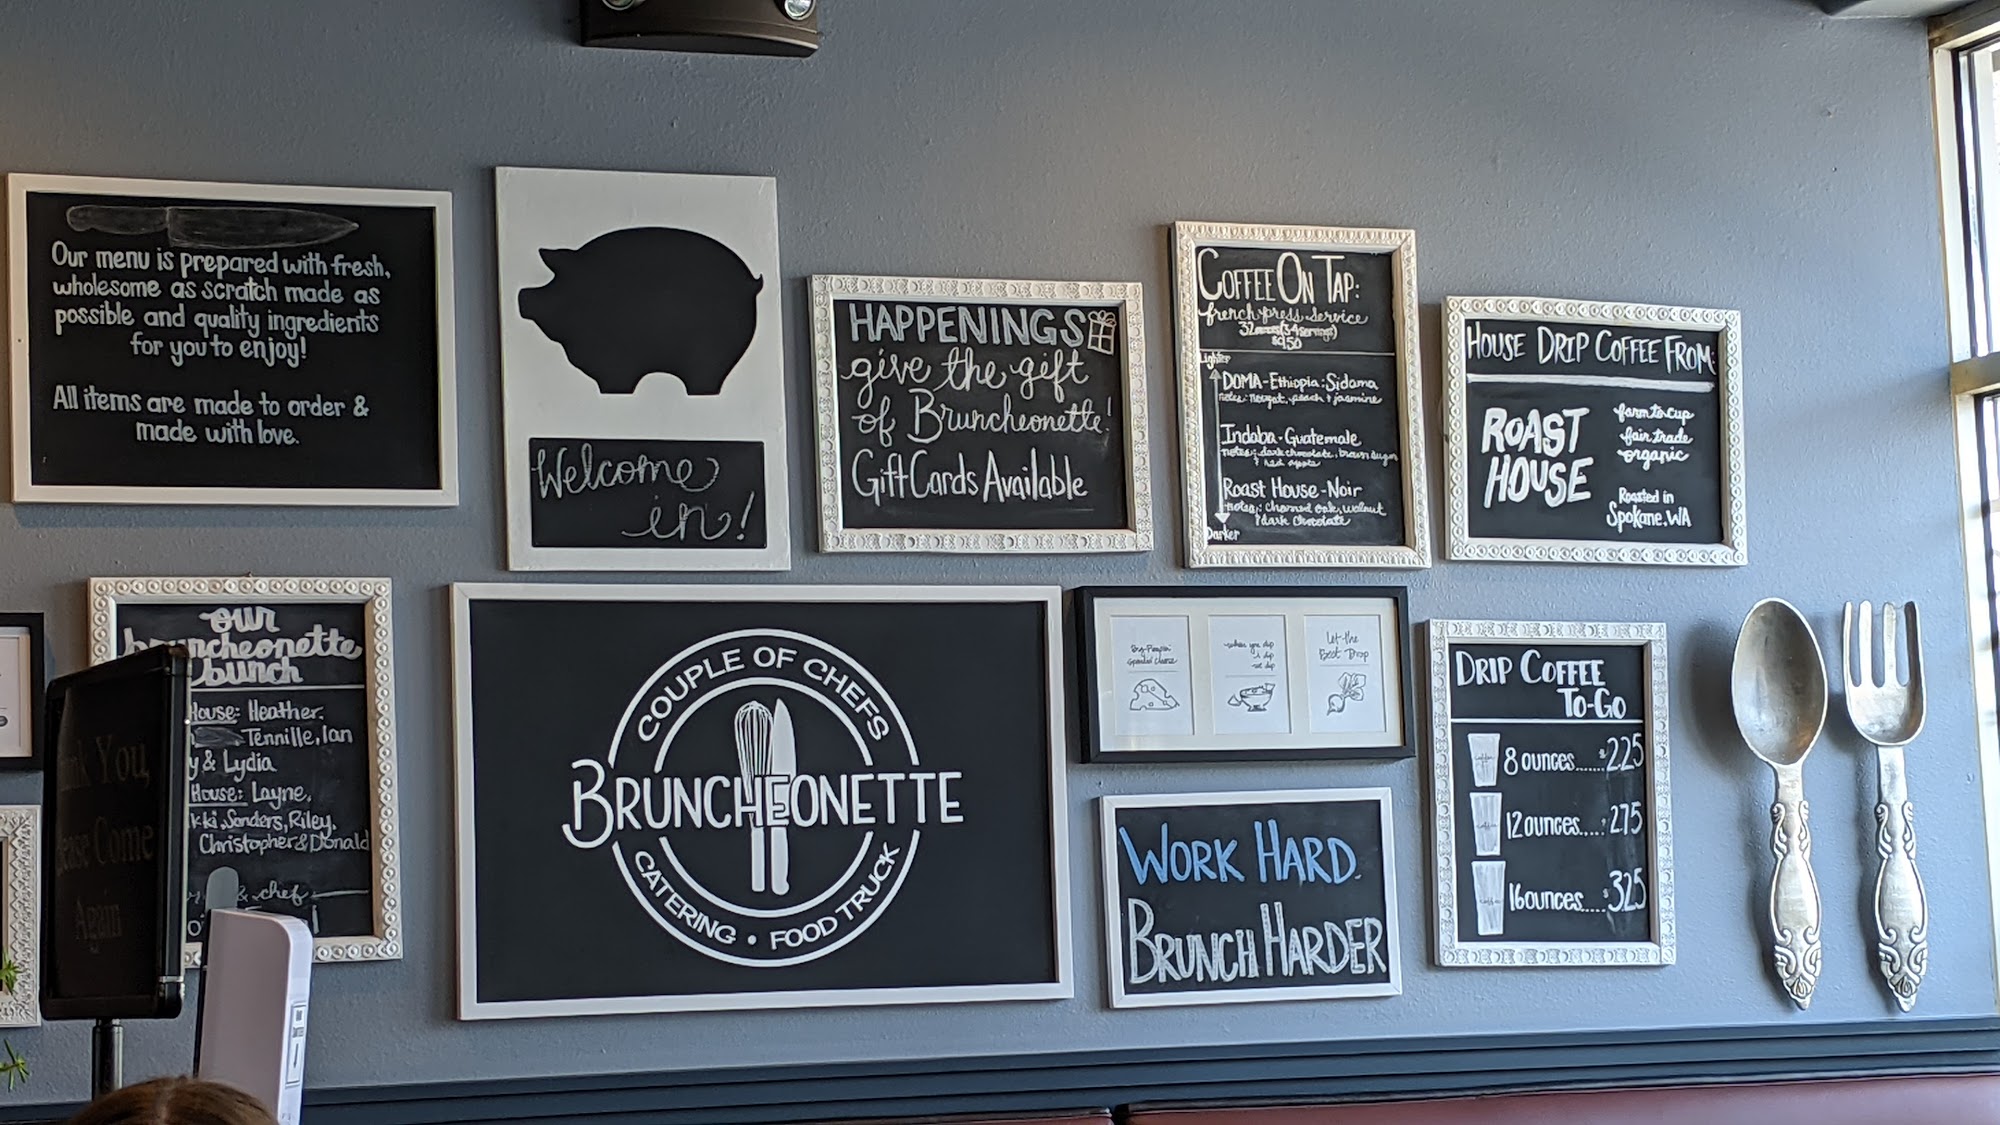 Our menu is prepared with fresh,
wholesome as scratch made as
possible and quality ingredients
for you to enjoy!
All items are made to order &
made with love.
Welcome
in!
HAPPENINGS
give the gift
of Bruncheonette!
Gift Cards Available
COFFEE ON TAP:
french press service
32 (3-4 servings)
$9.50
Lighter
DOMA-Ethiopia: Sidama
notes: nougat, peach + jasmine
Indaba-Guatemale
notes: dark chocolate, brown sugar
red apple
Roast House-Noir
notes: charred oak, walnut
& dark chocolate
Darker
HOUSE DRIP COFFEE FROM:
ROAST
HOUSE
farm to cup
fair trade
organic
Roasted in
Spokane, WA
our
bruncheonette
bunch
House: Heather,
Tennille, Ian
y & Lydia
House: Layne,
kki, Sanders, Riley,
Christopher & Donald
& chef
COUPLE OF CHEFS
BRUNCHEONETTE
CATERING • FOOD TRUCK
when you dip
i dip
we dip
Let the
Beet Drop
WORK HARD.
BRUNCH HARDER
DRIP COFFEE
TO-GO
8 ounces......$2.25
12 ounces....$2.75
16 ounces.....$3.25
nk You,
ease Come
Again